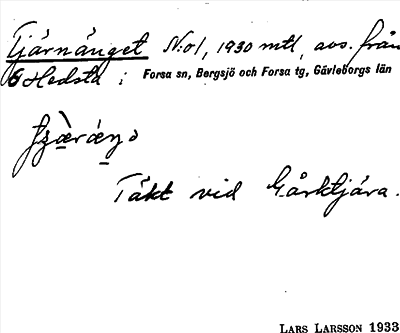 Tjärnänget N:o1, 1930 mtl, avs. från
6 Hedsta ; Forsa sn, Bergsjö och Forsa tg, Gävleborgs län
Täkt vid Gårktjära.
LARS LARSSON 1933